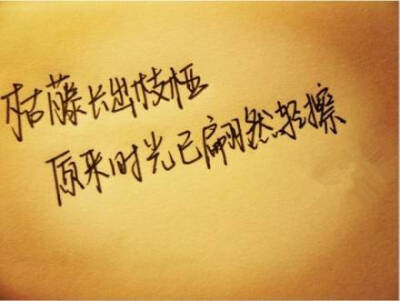 枯藤长出枝桠
原来时光已翩然轻擦